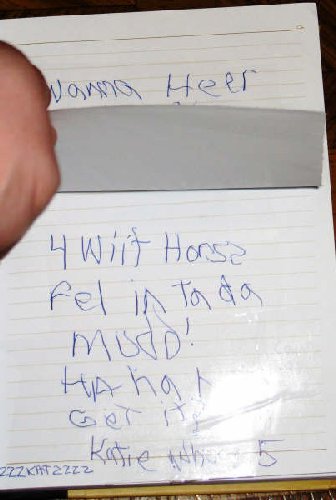 Wanna Heer
4 Wiit Horsz
Fel in Ta da
Mudd!
Ha ha!
Get it?
Katie 5
ZZZKATZZZZ